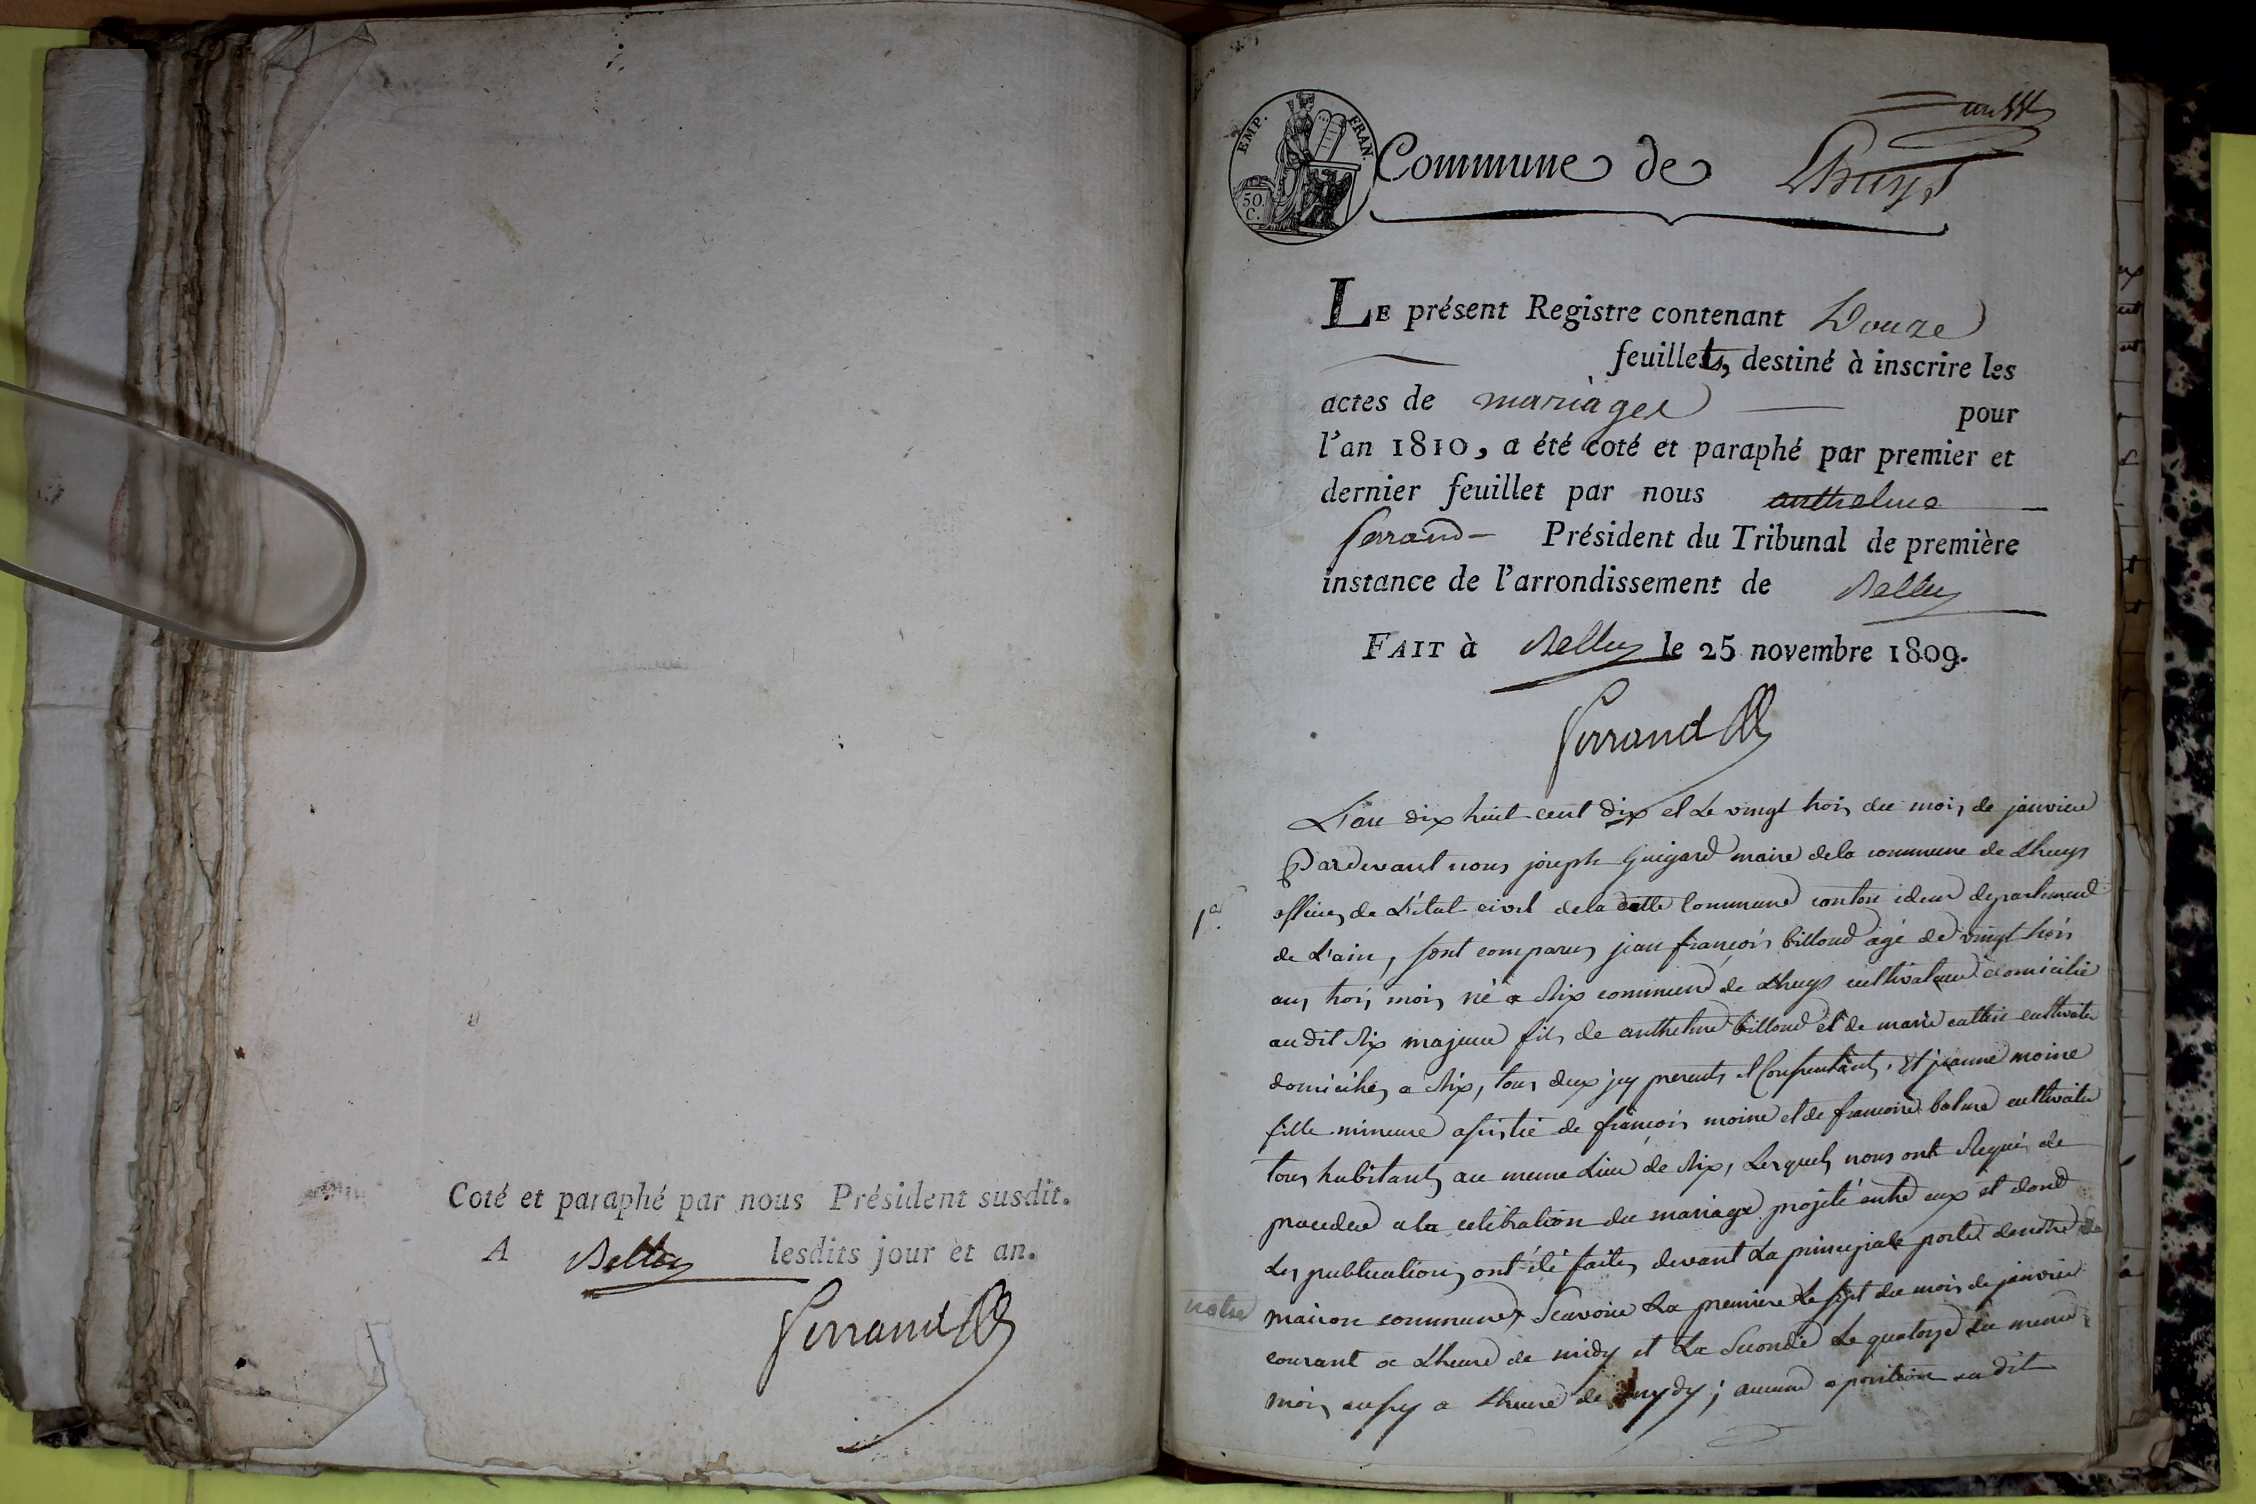 Coté et paraphé par nous Président susdit.
A Belley lesdits jour et an.
Ferrand
EMP. FRAN.
50. C.
Commune de Lhuys
LE présent Registre contenant Douze
feuillets, destiné à inscrire les
actes de mariages pour
l'an 1810, a été coté et paraphé par premier et
dernier feuillet par nous anthelme
ferrand Président du Tribunal de première
instance de l'arrondissement de Belley
FAIT à Belley le 25 novembre 1809.
Ferrand
L'an dix huit cent dix et Le vingt trois du mois de janvier
Pardevant nous joseph Guigard maire dela commune de Lhuys
1er officier de L'état civil dela ditte Commune canton idem departement
de L'ain, sont comparus jean françois billoud agé de vingt trois
ans trois mois né a Rix commune de Lhuys cultivateur domicilié
audit Rix majeur fils de anthelme billoud et de marie cultivate
domiciliés a Rix, tous deux jcy presents et Consentants. Et jeanne moine
fille mineure de françois moine et de francoise balme cultivate
tous habitants au meme Lieu de Rix, Lesquels nous ont Requis de
proceder a la celebration du mariage projeté entre eux et dont
Les publications ont été faites devant La principale porte dentree de
notre maison commune, Scavoir La premiere Le sept du mois de janvier
courant a Lheure de midy et La Seconde Le quatorze du meme
mois aussy a Lheure de mydy; aucune oposition audit